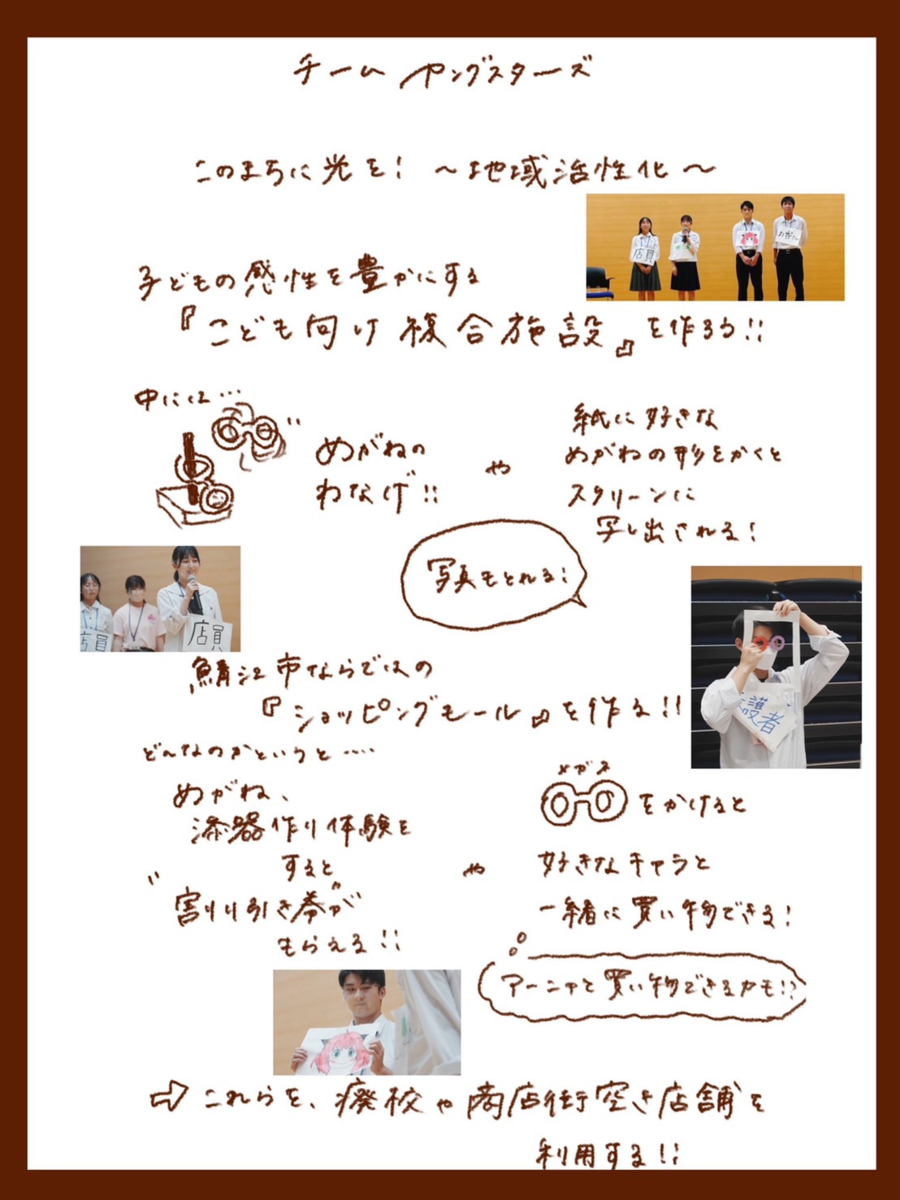 チーム ヤングスターズ
このまちに光を! ～地域活性化～
店員
おがた
子どもの感性を豊かにする
『こども向け複合施設』を作ろう!!
中には…
めがねの
わなげ!!
や
紙に好きな
めがねの形をかくと
スクリーンに
写し出される!
写真もとれる!
店員
店員
護者
鯖江市ならではの
『ショッピングモール』を作る!!
どんなのかというと….
めがね、
漆器作り体験を
すると
割り引き券が
もらえる!!
や
メガネ
をかけると
好きなキャラと
一緒に買い物できる!
アーニャと買い物できるカモ!?
⇨これらを、廃校や商店街空き店舗を
利用する!!